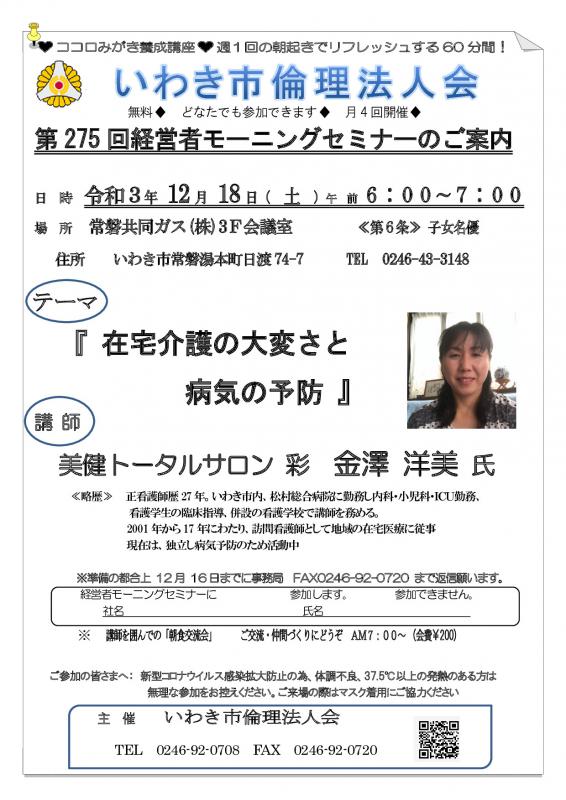 ♥ココロみがき養成講座♥週1回の朝起きでリフレッシュする60分間!
いわき市倫理法人会
無料◆ どなたでも参加できます◆ 月4回開催◆
第275回経営者モーニングセミナーのご案内
日 時 令和3年 12月 18日( 土 )午 前 6:00~7:00
場 所 常磐共同ガス(株)3F会議室 ≪第6条≫ 子女名優
住所 いわき市常磐湯本町日渡74-7 TEL 0246-43-3148
テーマ
『 在宅介護の大変さと
病気の予防 』
講 師
美健トータルサロン 彩 金澤 洋美 氏
≪略歴≫ 正看護師歴27年。いわき市内、松村総合病院に勤務し内科・小児科・ICU勤務、
看護学生の臨床指導、併設の看護学校で講師を務める。
2001年から17年にわたり、訪問看護師として地域の在宅医療に従事
現在は、独立し病気予防のため活動中
※準備の都合上 12月16日までに事務局 FAX0246-92-0720 まで返信願います。
経営者モーニングセミナーに 参加します。 参加できません。
社名 氏名
※ 講師を囲んでの「朝食交流会」 ご交流・仲間づくりにどうぞ AM7:00~(会費¥200)
ご参加の皆さまへ: 新型コロナウイルス感染拡大防止の為、体調不良、37.5℃以上の発熱のある方は
無理な参加をお控えください。ご来場の際はマスク着用にご協力ください
主 催 いわき市倫理法人会
TEL 0246-92-0708 FAX 0246-92-0720